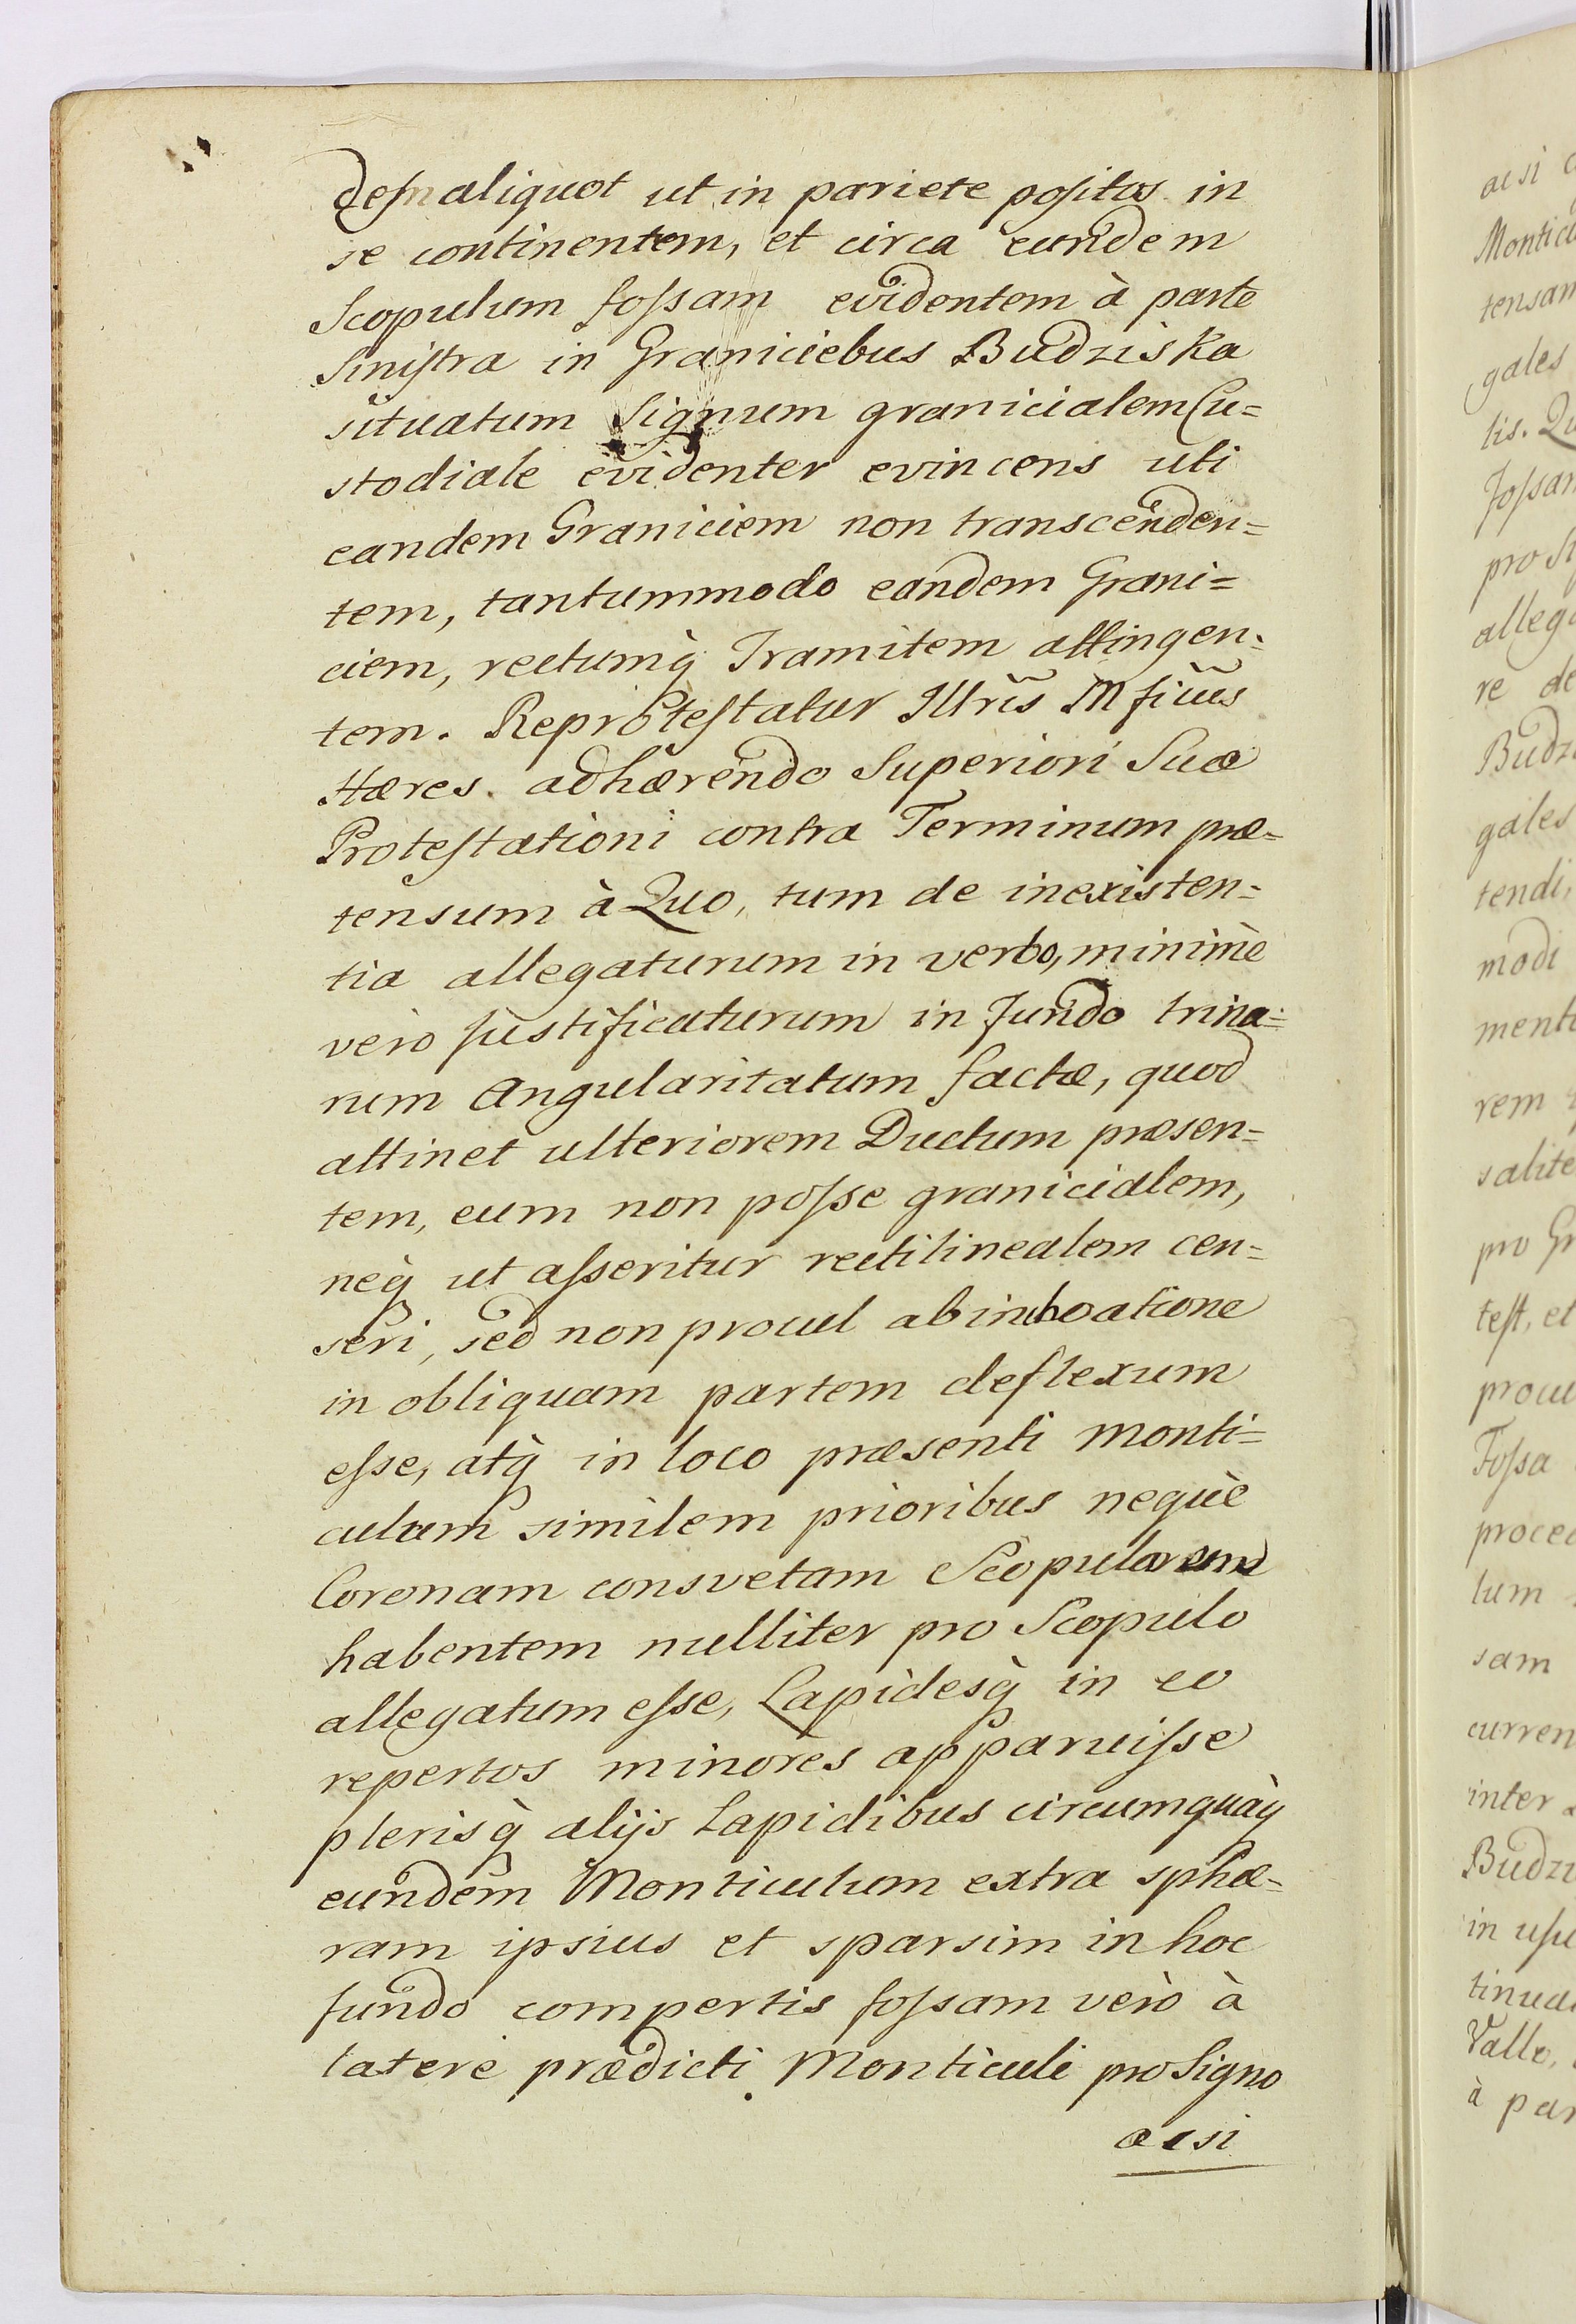 aliquot ut in pariete positos in
se continentem, et circa eundem
Scopulum fossam evidentem à parte
Sinistra in Graniciebus Budziska
situatum Signum granicialem Cu=
stodiale evidenter evincens uti
eandem Graniciem non transcenden=
tem, tantummodo eandem Grani=
ciem, rectumq̀ Tramitem attingen=
tem. Reprotestatur Illris Mfĩus
Hæres adhærendo Superiori Suæ
Protestationi contra Terminum præ=
tensum à Quo, tum de inexisten=
tia allegaturum in verbo, minimè
verò justificaturum in Fundo trina=
rum Angularitatum factæ, quod
attinet ulteriorem Ductum præsen=
tem, eum non posse granicialem,
neq̀ ut asseritur rectilinealem cen=
seri, sed non procul ab inchoatione
in obliquam partem deflexum
esse, atq̀ in loco præsenti Monti=
culum similem prioribus nequè
Coronam consvetam Scopularem
habentem nulliter pro Scopulo
allegatum esse, Lapidesq̀ in eo
repertos minores apparuisse
plerisq̀ alijs Lapidibus circumquàq̀
eundem Monticulum extra sphæ=
ram ipsius et sparsim in hoc
fundo compertis fossam verò à
latere prædicti Monticuli pro Signo
acsi
acsi
tensam
gales
lis.
Fossam
re de
gales
tendi
modi
rem
pro
test, et
Fossa
lum
sam
inter
in usu
Valle,
à par